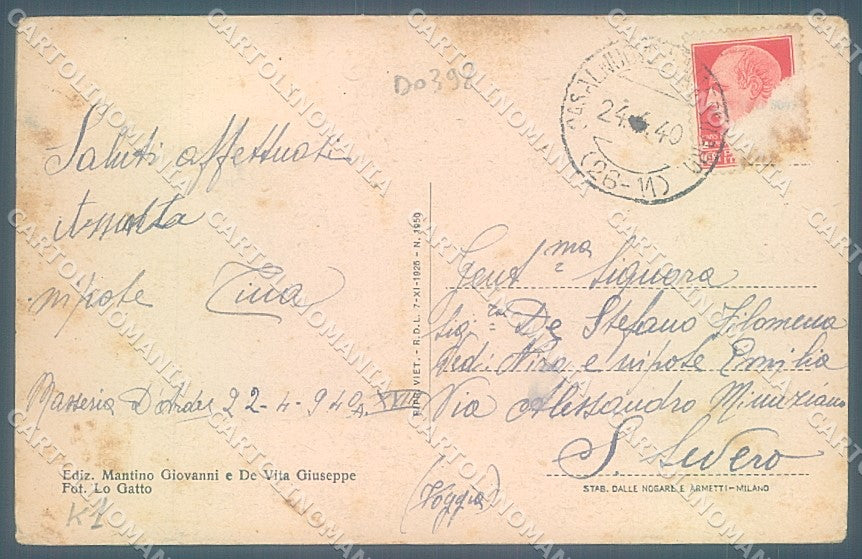 Do398
24.4.40
(26-11)
Saluti affettuosi
Assunta
nipote Tina
Masseria D'Ardes 22-4-940 A. XVIII
Gent.ma Signora
Sig.ra De Stefano Filomena
Ved: Nira e nipote Emilia
Via Alessandro Minuziano
S. Severo
(Foggia)
RIPR. VIET. - R.D.L. 7-XI-1925 - N. 1950
Ediz. Mantino Giovanni e De Vita Giuseppe
Fot. Lo Gatto
STAB. DALLE NOGARE E ARMETTI-MILANO
K1
CARTOLINOMANIA